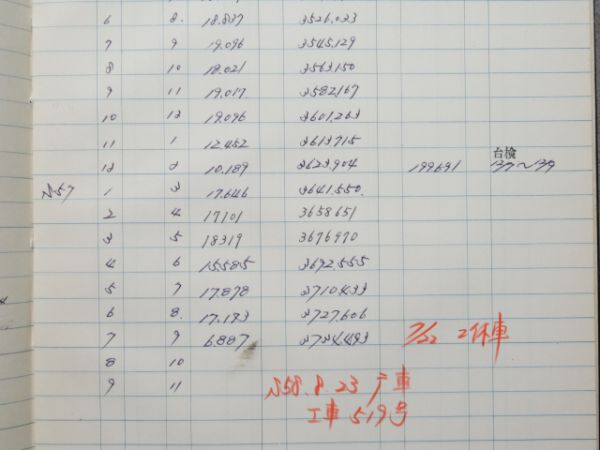 6 8. 18.837 3526.033
7 9 19.096 3545.129
8 10 18.021 3563.150
9 11 19.017 3582.167
10 12 19.096 3601.263
11 1 12.452 3613.715
台検
12 2 10.189 3623.904 199691
S57 1 3 17.646 3641.550.
2 4 17101 3658651
3 5 18319 3676970
4 6 15.585 3692.555
5 7 17.878 3710.433
6 8. 17.173 3727.606
7 9 6887 3734.493 7/22 休車
8 10
9 11
S58.8.23 广車
工車 519号